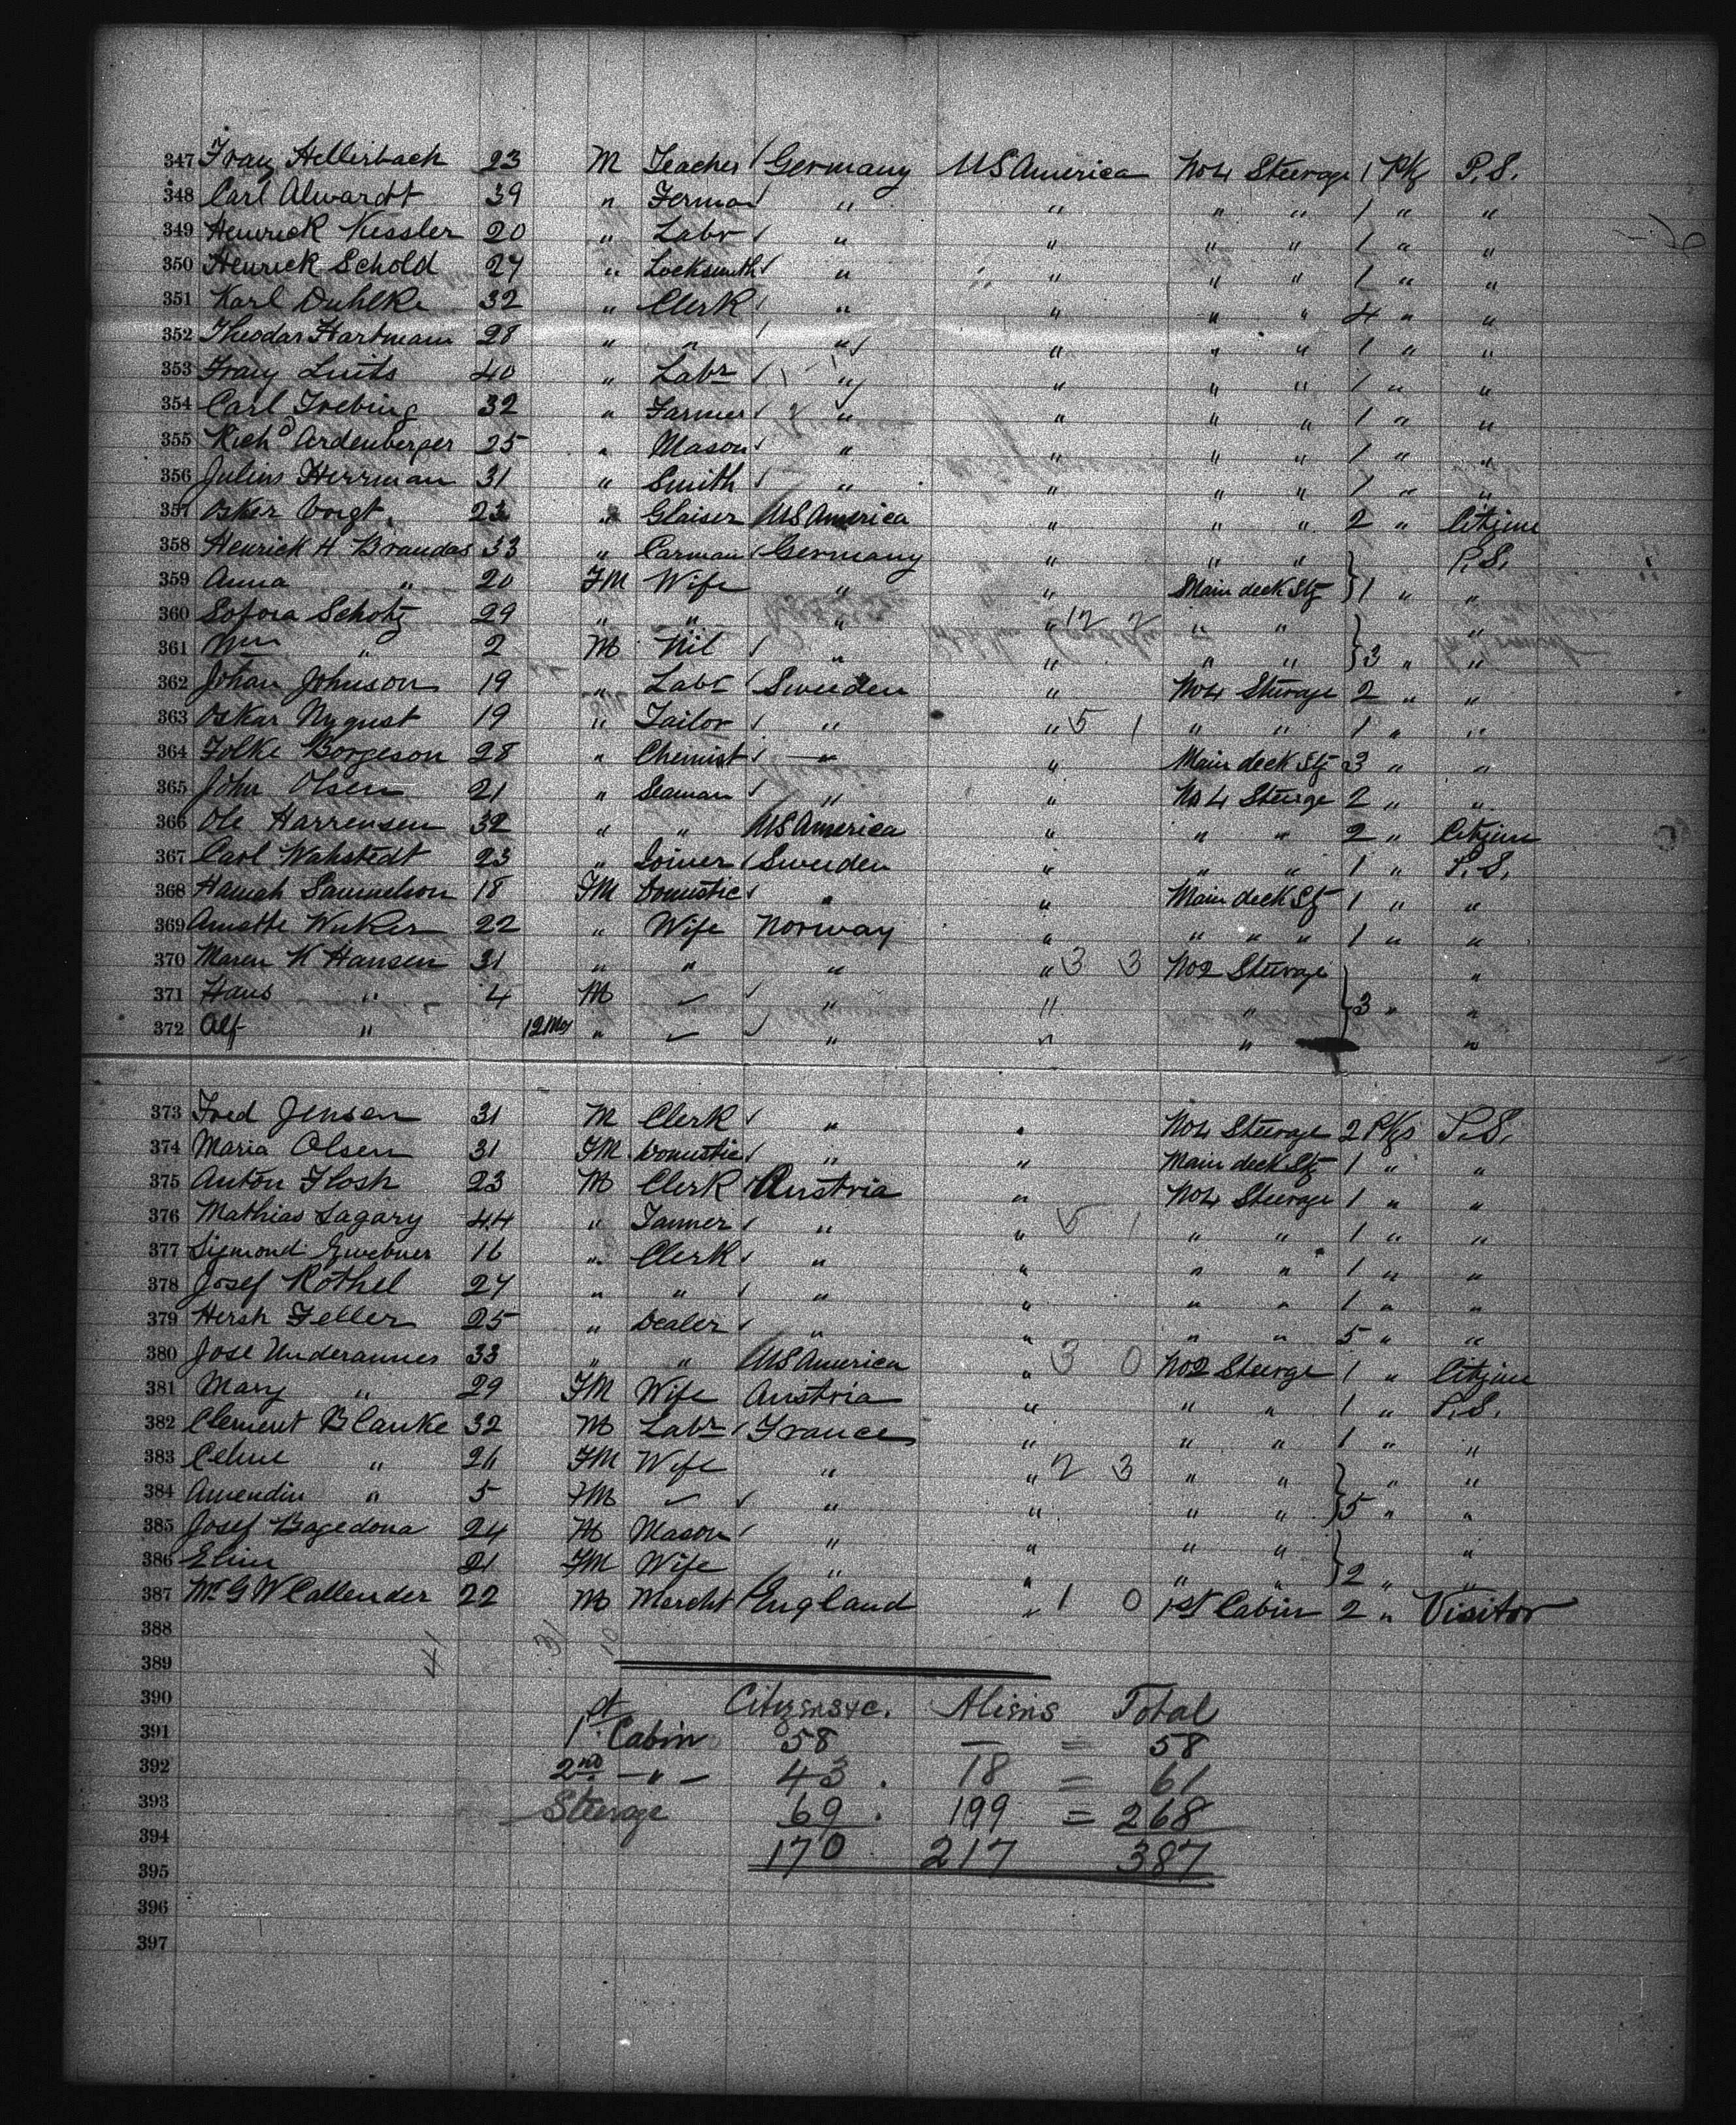 347 Franz Hellerbach 23 M Teacher Germany US America No4 Steerage 1 Pkg P.S.
348 Carl Alwardt 39 " Ferman " " " " 1 " "
349 Heinrick Kessler 20 " Labr " " " " 1 " "
350 Henrick Schold 27 " Locksmith " " " " 1 " "
351 Karl Duhlke 32 " Clerk " " " " 4 " "
352 Theodar Hartmann 28 " " " " " " 1 " "
353 Franz Luits 40 " Labr " " " " 1 " "
354 Carl Trebing 32 " Farmer " " " " 1 " "
355 Richd Ardenberger 25 " Mason " " " " 1 " "
356 Julius Herrman 31 " Smith " " " " 1 " "
357 Osker Voigt 23 " Glaiser US America " " " 2 " Citizine
358 Henrick H Brandas 33 " Carman Germany " " " " P.S.
359 Anna " 20 FM Wife " " Main deck Stg 1 " "
360 Schotz 29 " " " " 12 2 " " "
361 Wm " 2 M Nil " " " " 3 " "
362 Johan Johnson 19 " Labr Sweeden " No4 Steerage 2 " "
363 Oskar Nyqust 19 " Tailor " " 5 1 " " 1 " "
364 Folke Borgeson 28 " Chemist " " Main deck Stg 3 " "
365 John Olsen 21 " Seaman " " No 4 Steerge 2 " "
366 Ole Harrensen 32 " " US America " " " 2 " Citizine
367 Carl Wahstedt 23 " Joiner Sweeden " " " 1 " P.S.
368 Hannah Samuelson 18 FM Domistic " " Main deck Stg 1 " "
369 Annette 22 " Wife Norway " " " " 1 " "
370 Maren K Hansen 31 " " " " 3 3 No2 Steerage "
371 Hans " 4 M " " " 3 " "
372 Alf " 12 Mos " " " " "
373 Fred Jensen 31 M Clerk " " No4 Steerage 2 Pkgs P.S.
374 Maria Olsen 31 FM Domistic " " Main deck Stg 1 " "
375 Anton Flosh 23 M Clerk Austria " No4 Steerage 1 " "
376 Mathias Lagary 44 " Tanner " " 5 1 " " 1 " "
377 Sigmond 16 " Clerk " " " " 1 " "
378 Josef Rothel 27 " " " " " " 1 " "
379 Hersh Feller 25 " Dealer " " " " 5 " "
380 Jose Underannes 33 " " US America " 3 0 No2 Steerge 1 " Citizine
381 Mary " 29 FM Wife Austria " " " 1 " P.S.
382 Clement Blanke 32 M Labr France " " " 1 " "
383 Celine " 26 FM Wife " " 2 3 " " " "
384 Amendin " 5 FM " " " " 5 " "
385 Josef Bagedona 24 M Mason " " " " "
386 Elin 21 FM Wife " " " " 2 " "
387 Mr G W Callender 22 M Marcht England " 1 0 1st Cabin 2 " Visitor
388
389
390 Citizens &c. Aliens Total
391 1st Cabin 58 — = 58
392 2nd — " — 43 . 18 = 61
393 Steerage 69 . 199 = 268
394 170 217 387
395
396
397